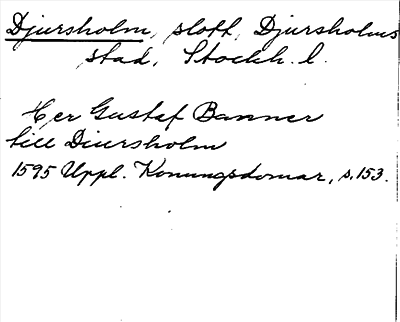 Djursholm, slott, Djursholms
stad, Stockh. l.
Her Gustaf Banner
till Diursholm
1595 Uppl. Konungsdomar, s. 153.